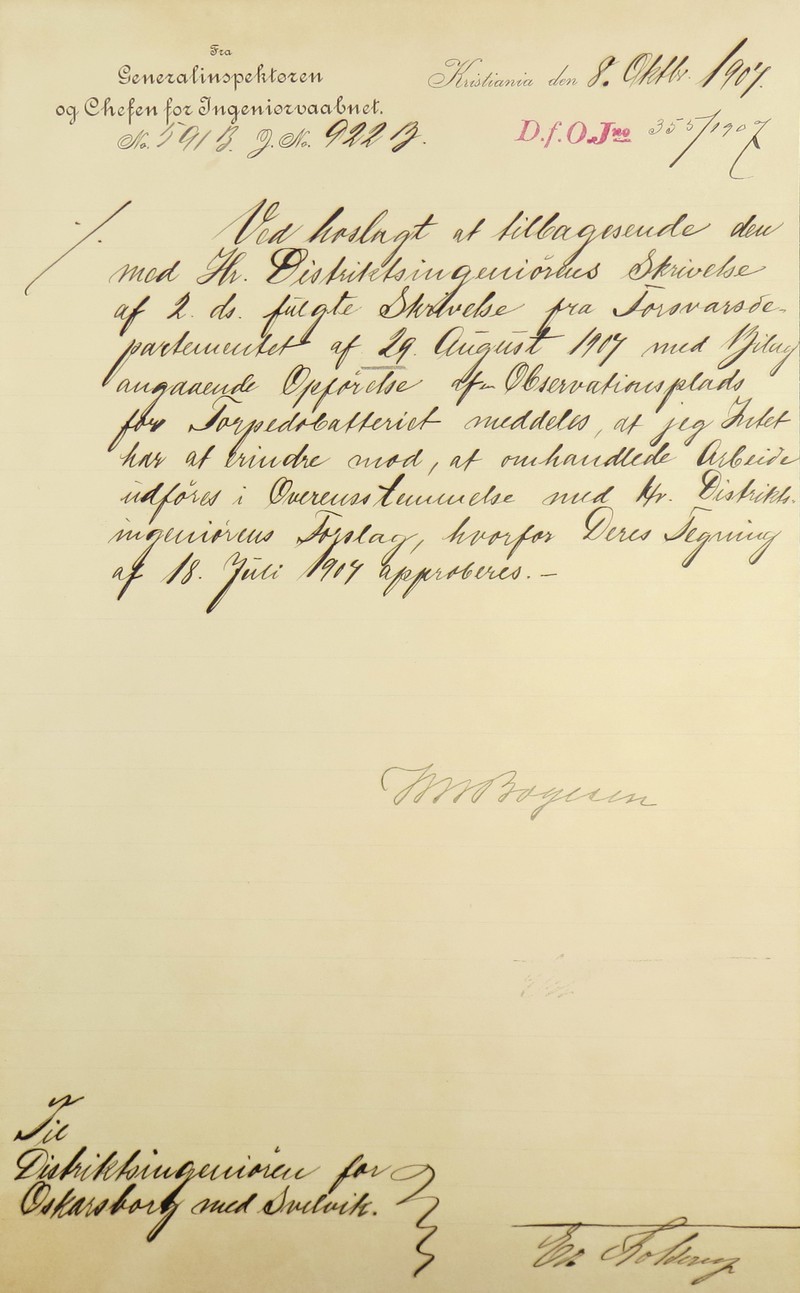 Fra
Generalinspektøren
og Chefen for Ingeniørvaabnet.
Kristiania den 8. Oktbr. 1907.
No. 591 B. J. No. 922 B.
D.f.O. Jno 355/1907
Ved hoslagt at tilbagesende den
med Hr. Distriktsingeniörens Skrivelse
af 2. ds. fulgte Skrivelse fra Forsvarsde-
partementet af 29. August 1907 med Bilag
angaaende Opförelse af Observationsplads
for Torpedobatteriet meddeles, at jeg Intet
har at erindre mod, at omhandlede Arbeide
udföres i Overensstemmelse med Hr. Distrikts-
ingeniörens Forslag, hvorfor Deres Tegning
af 18. Juli 1907 approberes. –
Bögesen
Til
Distriktsingeniören for
Oskarsborg med Svelvik.